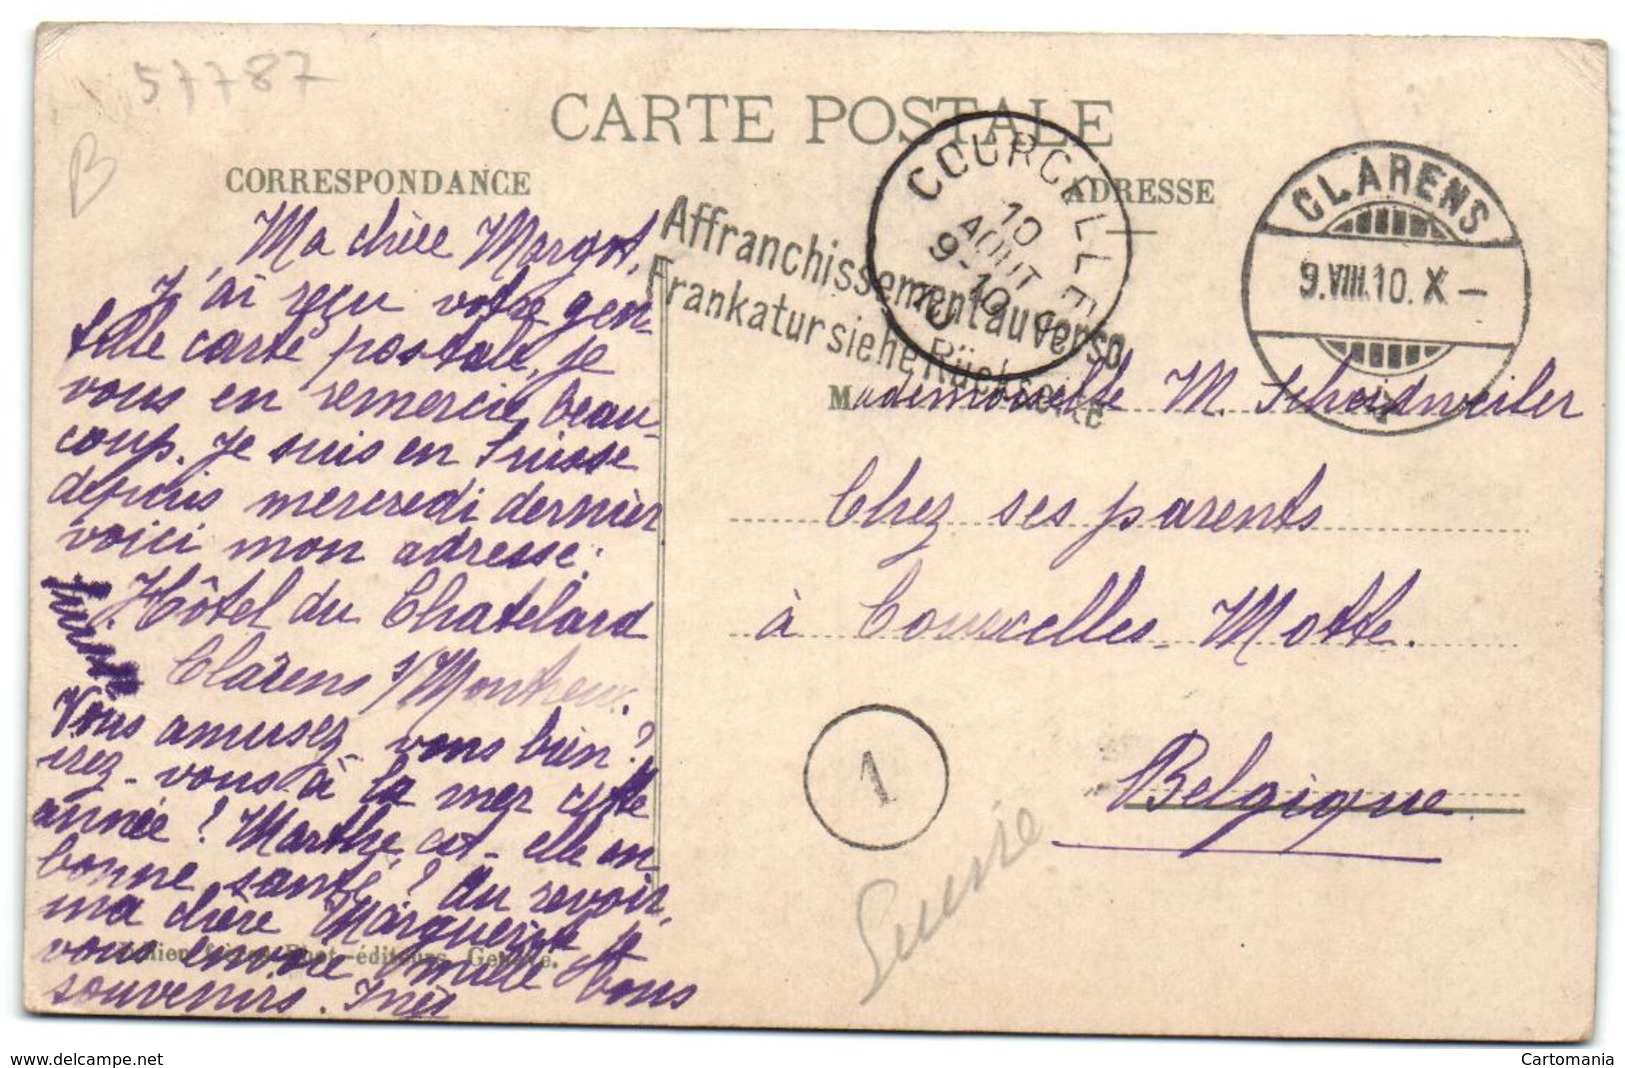 57787
B
CARTE POSTALE
CORRESPONDANCE
ADRESSE
Ma chère Margot,
J'ai reçu votre gen-
tille carte postale, je
vous en remercie beau-
coup. Je suis en Suisse
depuis mercredi dernier
voici mon adresse:
Hôtel du Chatelard
Clarens s/Montreux.
Suisse
Vous amusez-vous bien?
irez-vous à la mer cette
année? Marthe est-elle en
bonne santé? Au revoir,
ma chère Marguerite je
vous envoie mille bons
souvenirs. Inès
-éditeurs, Genève.
Affranchissement au verso
Frankatur siehe Rückseite
COURCELLES
10
AOUT
9-10
10
CLARENS
9.VIII.10.X-
Mademoiselle M. Scheidweiler
Chez ses parents
à Courcelles-Motte.
Belgique
1
Suisse
www.delcampe.net
Cartomania